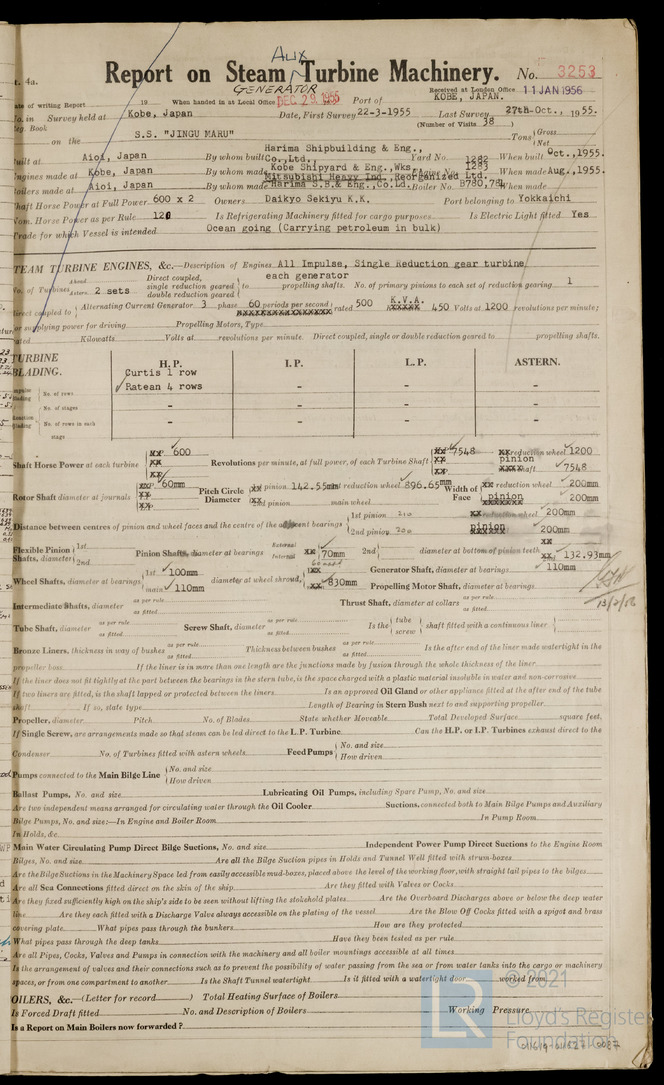 t. 4a.
Aux
Report on Steam Turbine Machinery. No. 3253
GENERATOR
Received at London Office 11 JAN 1956
ate of writing Report 19 When handed in at Local Office DEC 29 1955 Port of KOBE, JAPAN.
Survey held at Kobe, Japan Date, First Survey 22-3-1955 Last Survey 27th Oct., 1955.
Book (Number of Visits 38
on the S.S. "JINGU MARU" Tons Gross Net
Built at Aioi, Japan By whom built Harima Shipbuilding & Eng., Co., Ltd., Yard No. 1282 When built Oct., 1955.
Engines made at Kobe, Japan By whom made Kobe Shipyard & Eng., Wks. Mitsubishi Heavy Ind., Reorganized Ltd. Engine No. 1283 When made Aug., 1955.
Boilers made at Aioi, Japan By whom made Harima S.B.& Eng., Co.Ld. Boiler No. B780,781 When made
Shaft Horse Power at Full Power 600 x 2 Owners Daikyo Sekiyu K.K. Port belonging to Yokkaichi
Nom. Horse Power as per Rule 120 Is Refrigerating Machinery fitted for cargo purposes Is Electric Light fitted Yes
Trade for which Vessel is intended Ocean going (Carrying petroleum in bulk)
STEAM TURBINE ENGINES, &c.—Description of Engines All Impulse, Single Reduction gear turbine
each generator
No. of Turbines Ahead Astern 2 sets Direct coupled, single reduction geared double reduction geared to propelling shafts. No. of primary pinions to each set of reduction gearing 1
direct coupled to Alternating Current Generator 3 phase 60 periods per second rated 500 K.V.A. 450 Volts at 1200 revolutions per minute;
for supplying power for driving Propelling Motors, Type
rated Kilowatts Volts at revolutions per minute. Direct coupled, single or double reduction geared to propelling shafts.
TURBINE BLADING. H.P. I.P. L.P. ASTERN.
Impulse Blading No. of rows Curtis 1 row - - -
Ratean 4 rows
No. of stages - - -
Reaction Blading No. of rows in each stage - - -
Shaft Horse Power at each turbine 600 Revolutions per minute, at full power, of each Turbine Shaft 7548 reduction wheel 1200
pinion shaft 7548
Rotor Shaft diameter at journals 60mm Pitch Circle Diameter pinion 142.55mm reduction wheel 896.65mm Width of Face reduction wheel 200mm
2nd pinion main wheel pinion 200mm
Distance between centres of pinion and wheel faces and the centre of the adjacent bearings 1st pinion 210 reduction wheel 200mm
2nd pinion 200 pinion 200mm
Flexible Pinion Shafts, diameter 1st 2nd Pinion Shafts, diameter at bearings External Internal 70mm 2nd diameter at bottom of pinion teeth 132.93mm
Wheel Shafts, diameter at bearings 1st 100mm main 110mm diameter at wheel shroud, 830mm Generator Shaft, diameter at bearings 110mm
Propelling Motor Shaft, diameter at bearings
Intermediate Shafts, diameter as per rule as fitted Thrust Shaft, diameter at collars as per rule as fitted
Tube Shaft, diameter as per rule as fitted Screw Shaft, diameter as per rule as fitted Is the tube screw shaft fitted with a continuous liner
Bronze Liners, thickness in way of bushes as per rule as fitted Thickness between bushes as per rule as fitted Is the after end of the liner made watertight in the
propeller boss If the liner is in more than one length are the junctions made by fusion through the whole thickness of the liner
If the liner does not fit tightly at the part between the bearings in the stern tube, is the space charged with a plastic material insoluble in water and non-corrosive
If two liners are fitted, is the shaft lapped or protected between the liners Is an approved Oil Gland or other appliance fitted at the after end of the tube
shaft If so, state type Length of Bearing in Stern Bush next to and supporting propeller
Propeller, diameter Pitch No. of Blades State whether Moveable Total Developed Surface square feet.
If Single Screw, are arrangements made so that steam can be led direct to the L.P. Turbine Can the H.P. or I.P. Turbines exhaust direct to the
Condenser No. of Turbines fitted with astern wheels Feed Pumps No. and size How driven
Pumps connected to the Main Bilge Line No. and size How driven
Ballast Pumps, No. and size Lubricating Oil Pumps, including Spare Pump, No. and size
Are two independent means arranged for circulating water through the Oil Cooler Suctions, connected both to Main Bilge Pumps and Auxiliary
Bilge Pumps, No. and size:—In Engine and Boiler Room In Pump Room
In Holds, &c.
Main Water Circulating Pump Direct Bilge Suctions, No. and size Independent Power Pump Direct Suctions to the Engine Room
Bilges, No. and size Are all the Bilge Suction pipes in Holds and Tunnel Well fitted with strum-boxes
Are the Bilge Suctions in the Machinery Space led from easily accessible mud-boxes, placed above the level of the working floor, with straight tail pipes to the bilges
Are all Sea Connections fitted direct on the skin of the ship Are they fitted with Valves or Cocks
Are they fixed sufficiently high on the ship's side to be seen without lifting the stokehold plates Are the Overboard Discharges above or below the deep water
line Are they each fitted with a Discharge Valve always accessible on the plating of the vessel Are the Blow Off Cocks fitted with a spigot and brass
covering plate What pipes pass through the bunkers How are they protected
What pipes pass through the deep tanks Have they been tested as per rule
Are all Pipes, Cocks, Valves and Pumps in connection with the machinery and all boiler mountings accessible at all times
Is the arrangement of valves and their connections such as to prevent the possibility of water passing from the sea or from water tanks into the cargo or machinery
spaces, or from one compartment to another Is the Shaft Tunnel watertight Is it fitted with a watertight door worked from
BOILERS, &c.—(Letter for record) Total Heating Surface of Boilers
Is Forced Draft fitted No. and Description of Boilers Working Pressure
Is a Report on Main Boilers now forwarded?
© 2021
Lloyd's Register
Foundation